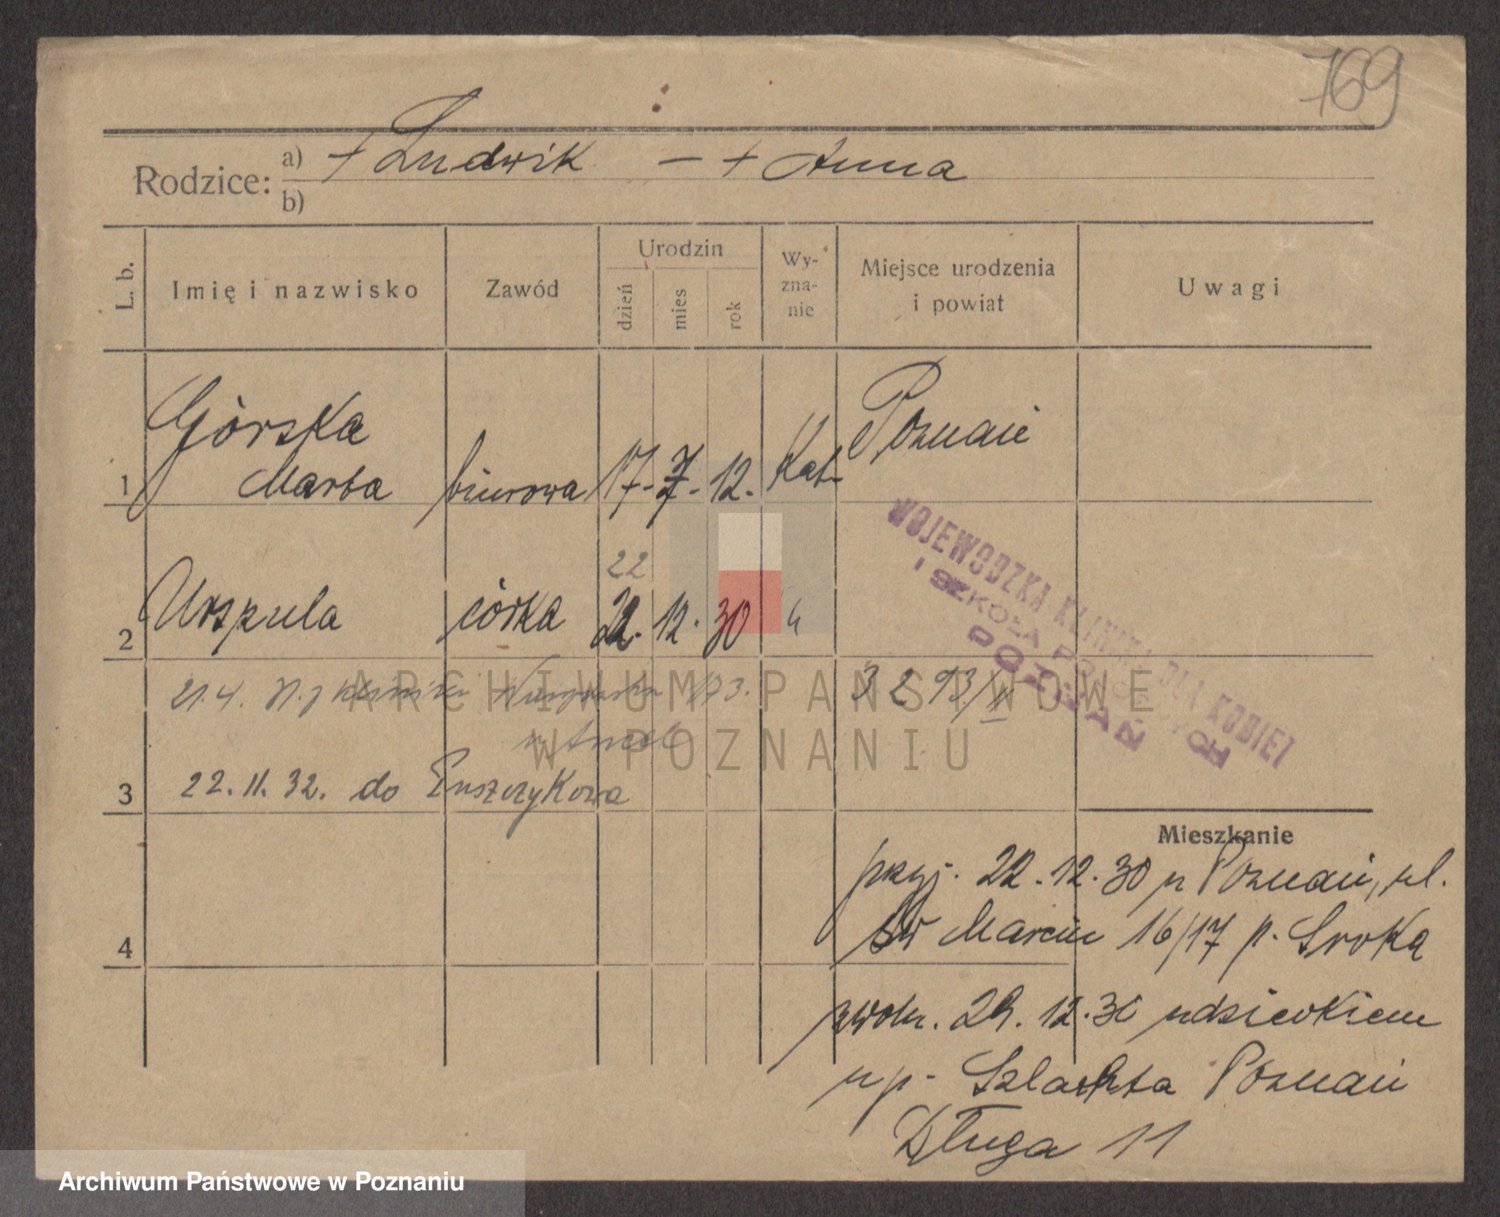 769
Rodzice: a) + Ludwik — + Anna
b)
L. b. Imię i nazwisko Zawód Urodzin dzień mies rok Wy-zna-nie Miejsce urodzenia i powiat Uwagi
1 Górska Marta biurowa 17. 7. 12. Kat. Poznań
22
2 Urszula córka 22. 12. 30 "
WOJEWÓDZKA KLINIKA DLA KOBIET
I SZKOŁA POŁOŻNYCH
POZNAŃ
21.4. 3 2 93/II
3 22. 11. 32. do Puszczykowa
Mieszkanie
przyj. 22.12.30 z Poznań, ul.
4 Św Marcin 16/17 p. Sroka
zwoln. 29.12.30 z dzieckiem
u p. Szlachta Poznań
Długa 11
ARCHIWUM PAŃSTWOWE
W POZNANIU
Archiwum Państwowe w Poznaniu